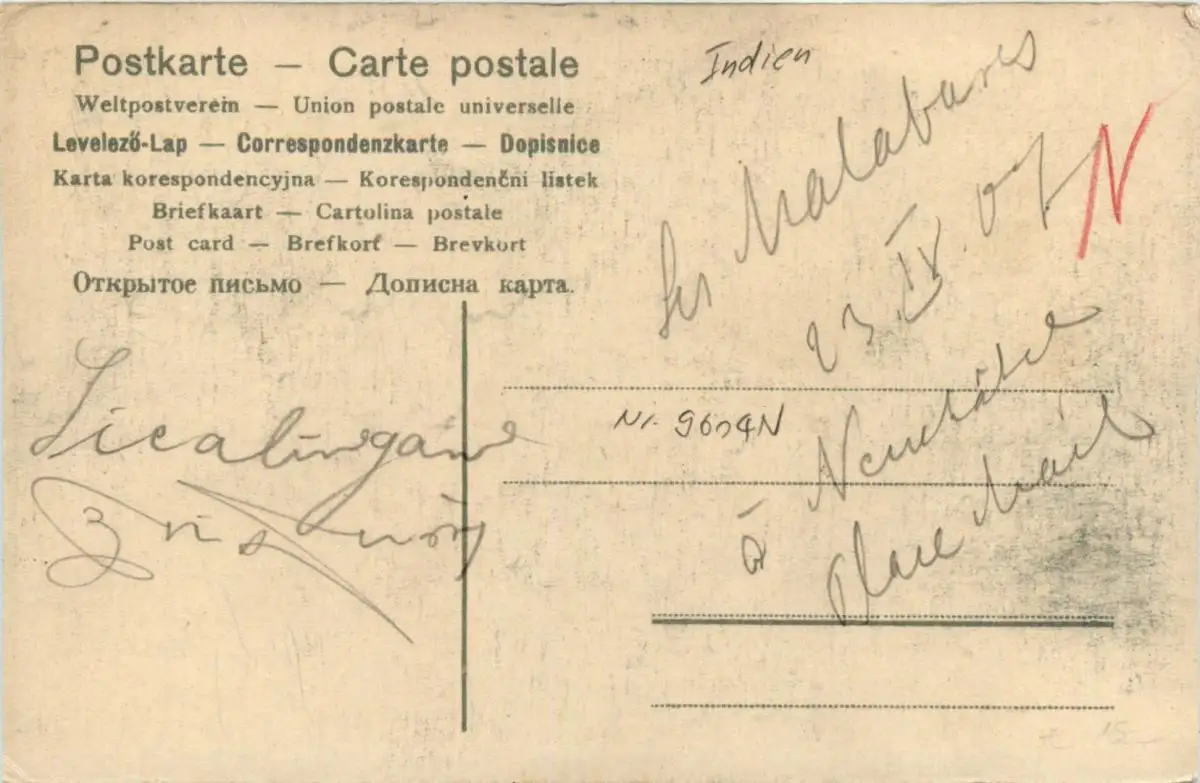 Postkarte — Carte postale
Weltpostverein — Union postale universelle
Levelező-Lap — Correspondenzkarte — Dopisnice
Karta korespondencyjna — Korespondenčni listek
Briefkaart — Cartolina postale
Post card — Brefkort — Brevkort
Открытое письмо — Дописна карта.
Indien
Les Malabares
23.IX.07
N
Nr. 9604N
à Neuchâtel
Place
15